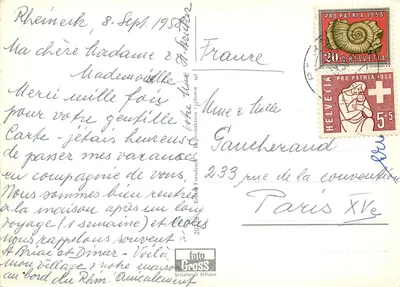 Rheineck, 8. Sept. 195
Ma chère Madame &
Mademoiselle
Merci mille fois
pour votre gentille
Carte - j'étais heureuse
de passer mes vacances
en compagnie de vous.
Nous sommes bien rentrés
à la maison après un long
voyage (1 semaine) et
nous rappelons souvent
St Briac et Dinar - Voilà
mon village & notre maison
au bord du Rhin. Amicalement
Votre
foto
Gross
St. Gallen
France
Mme & Melle
Gaucherand
233 rue de la convention
Paris XVe
PRO PATRIA 1958
20
HELVETIA
PRO PATRIA 1958
HELVETIA
5+5